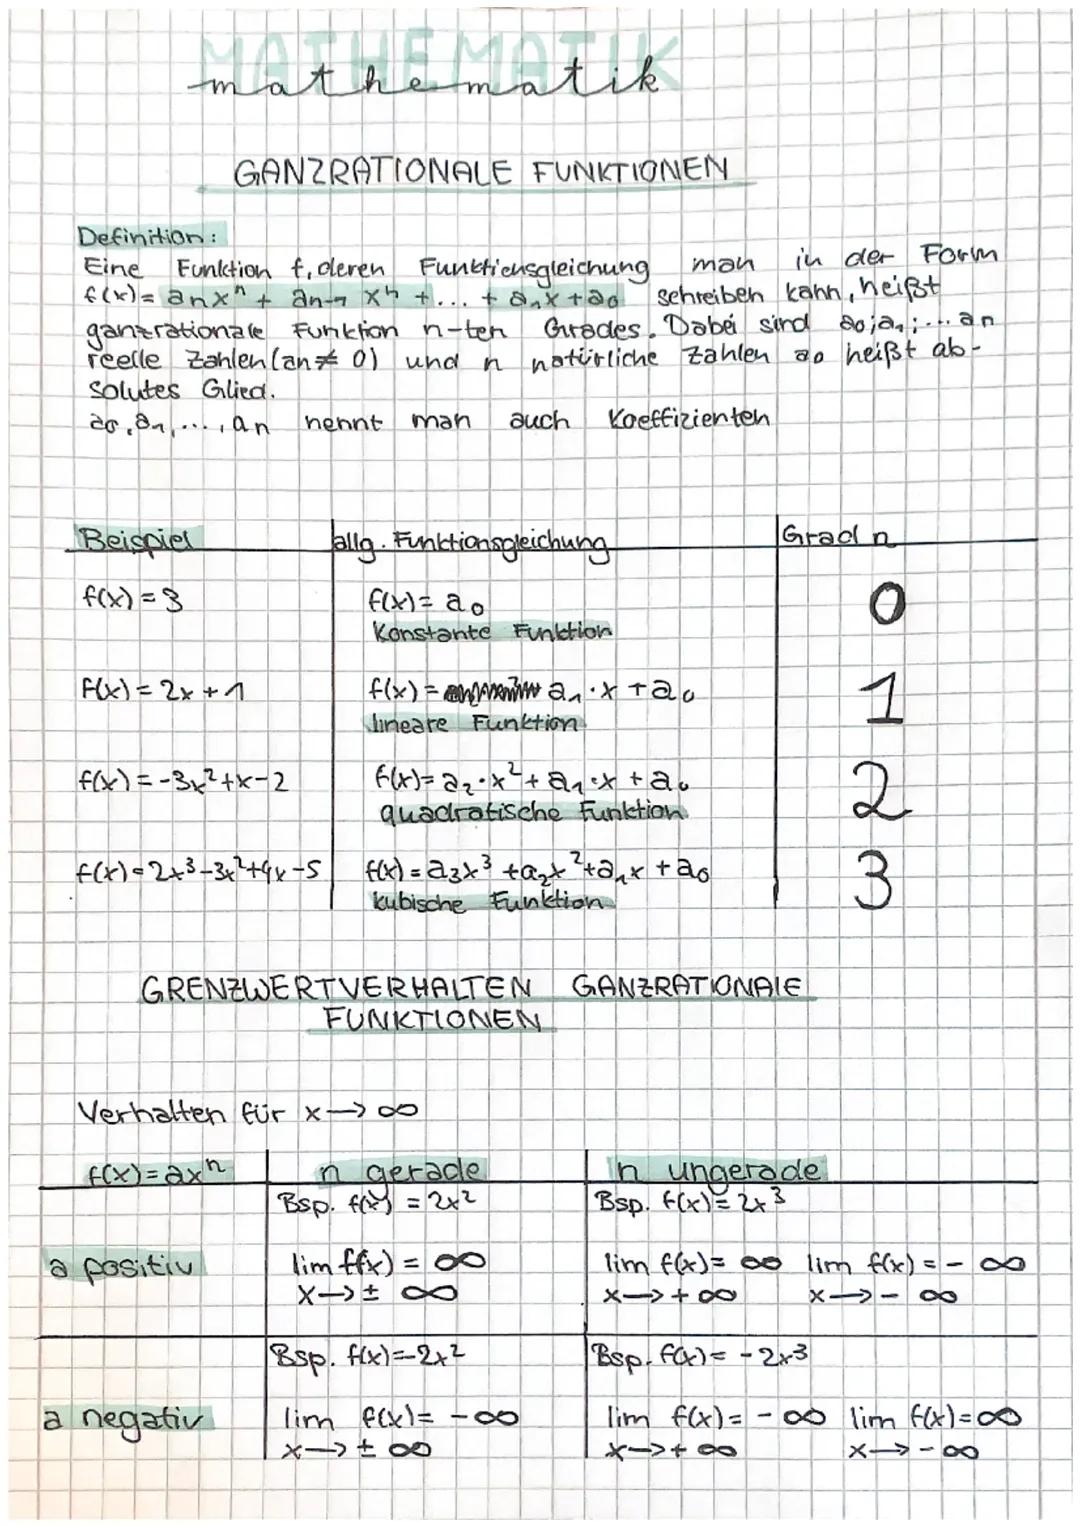 MATHEMATIK
mathematik
GANZRATIONALE FUNKTIONEN
Definition:
Eine Funktion f, deren Funktionsgleichung man in der Form
f(x) = anxⁿ + an-1 xⁿ + ... + a₁x + a₀ schreiben kann, heißt
ganzrationale Funktion n-ten Grades. Dabei sind a₀; a₁; ... an
reelle Zahlen (an ≠ 0) und n natürliche Zahlen a₀ heißt ab-
solutes Glied.
a₀, a₁, ..., an nennt man auch Koeffizienten
Beispiel allg. Funktionsgleichung Grad n
f(x) = 3 f(x) = a₀ 0
Konstante Funktion
f(x) = 2x + 1 f(x) = a₁·x + a₀ 1
lineare Funktion
f(x) = -3x²+x-2 f(x) = a₂·x² + a₁·x + a₀ 2
quadratische Funktion
f(x) = 2x³-3x²+4x-5 f(x) = a₃x³ + a₂x² + a₁x + a₀ 3
kubische Funktion
GRENZWERTVERHALTEN GANZRATIONALE
FUNKTIONEN
Verhalten für x → ∞
f(x) = axⁿ n gerade n ungerade
Bsp. f(x) = 2x² Bsp. f(x) = 2x³
a positiv lim f(x) = ∞ lim f(x) = ∞ lim f(x) = - ∞
x → ± ∞ x → + ∞ x → - ∞
Bsp. f(x) = -2x² Bsp. f(x) = -2x³
a negativ lim f(x) = -∞ lim f(x) = - ∞ lim f(x) = ∞
x → ± ∞ x → + ∞ x → - ∞